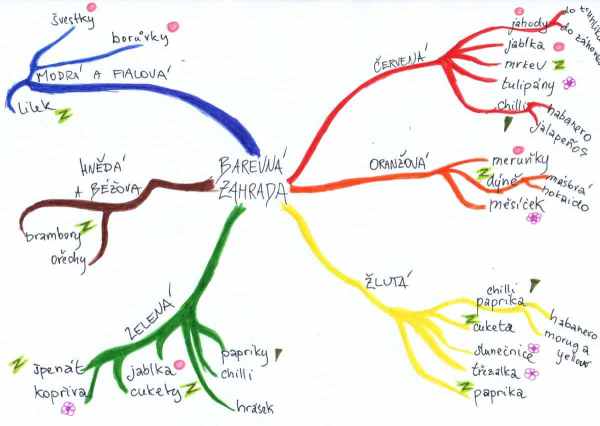 švestky
borůvky
MODRÁ A FIALOVÁ
lilek
HNĚDÁ
A BÉŽOVÁ
brambory
ořechy
BAREVNÁ
ZAHRADA
ZELENÁ
špenát
kopřiva
jablka
cukety
papriky
chilli
hrášek
ČERVENÁ
jahody
do truhlíku
do záhonu
jablka
mrkev
tulipány
chilli
habanero
jalapeños
ORANŽOVÁ
meruňky
dýně
hokaido
měsíček
ŽLUTÁ
chilli
paprika
habanero
moruga
yellow
cuketa
slunečnice
třezalka
paprika